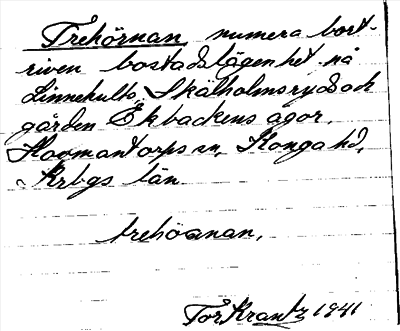 Trehörnan numera bort-
riven bostadslägenhet på
Linnehults, Skälholmsryds och
gården Ekbackens ägor,
Hovmantorps sn, Konga hd,
Krbgs län.
trehörnan,
Tor Krantz 1941